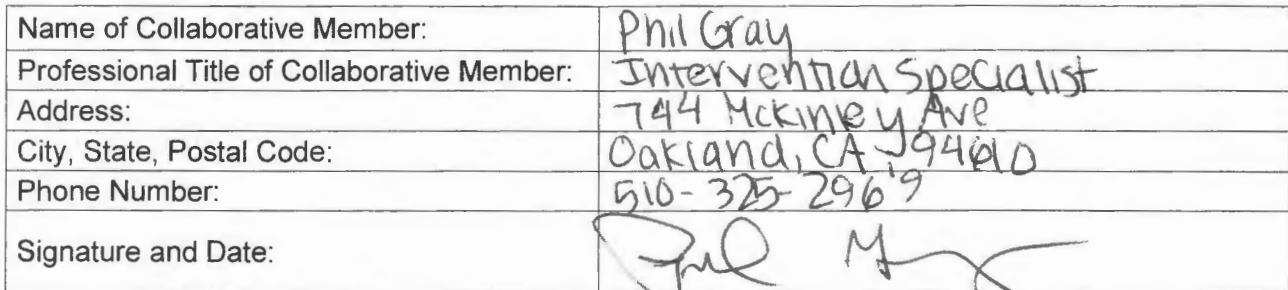 Name of Collaborative Member: Phil Gray
Professional Title of Collaborative Member: Intervention Specialist
Address: 744 McKinley Ave
City, State, Postal Code: Oakland, CA 94610
Phone Number: 510-325-2969
Signature and Date: